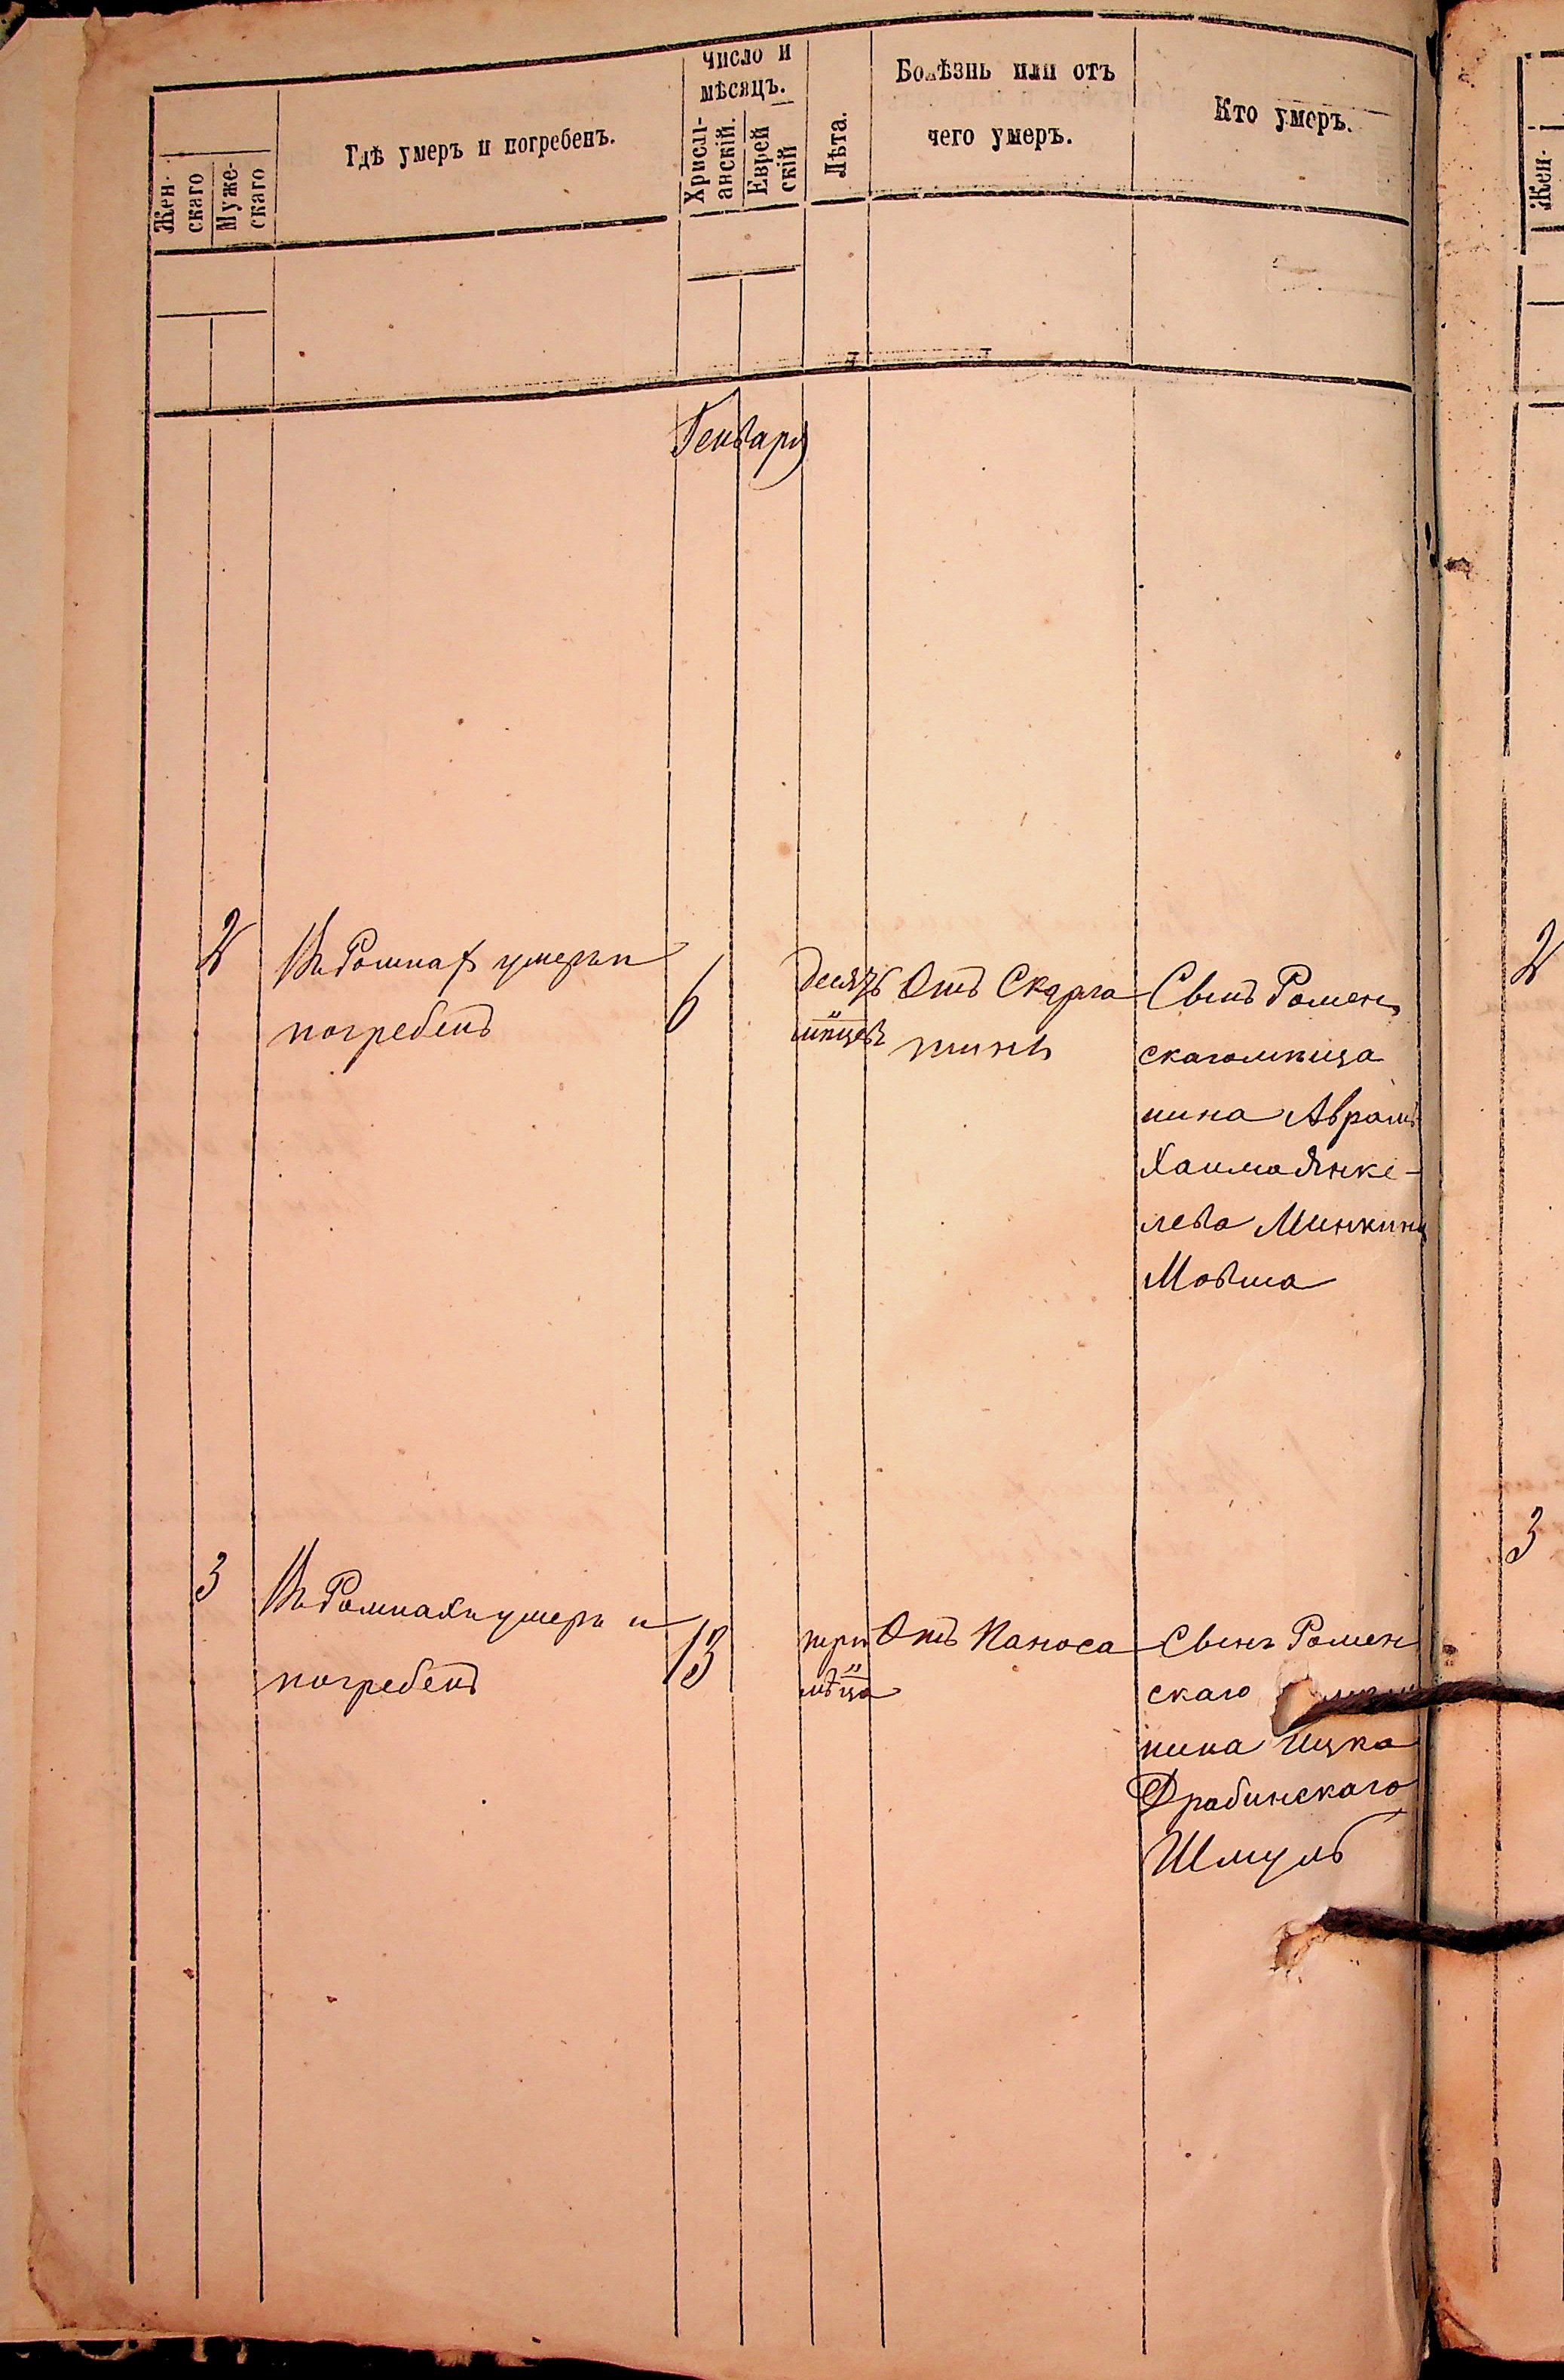 Жен-
скаго
Муже-
скаго
Гдѣ умеръ и погребенъ.
Число и
мѣсяцъ.
Христі-
анскій.
Еврей
скій
Лѣта.
Болѣзнь или отъ
чего умеръ.
Кто умеръ.
Генваря
2
Въ Ромнах умеръ и
погребенъ
6
десять
мѣцевъ
Отъ Скарла
тины
Сынъ Ромен
скаго мѣща
нина Аврамъ
Хаима Янке-
лева Минкина
Мовша
3
Въ Ромнахъ умеръ и
погребенъ
13
три
мѣца
Отъ Поноса
Сынъ Ромен
скаго
нина Ицка
Драбинскаго
Шмуль
Жен-
2
3